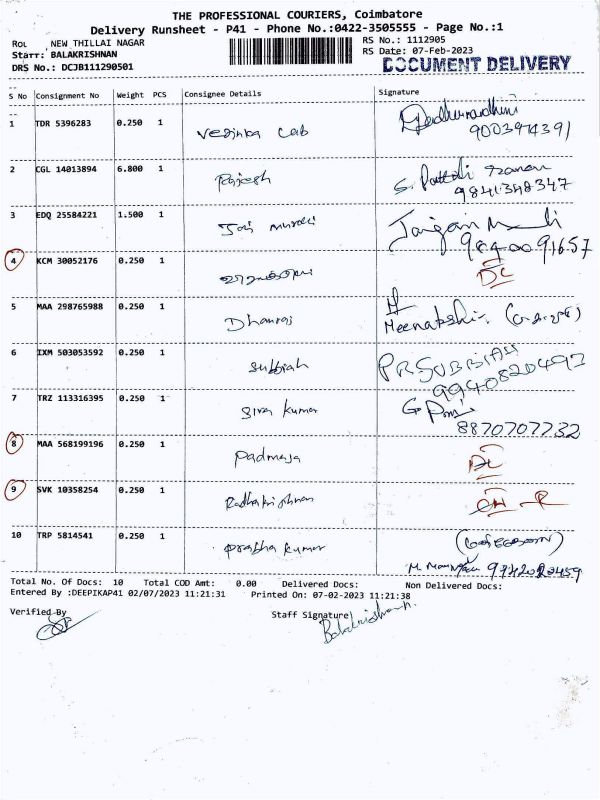 THE PROFESSIONAL COURIERS, Coimbatore
Delivery Runsheet - P41 - Phone No.:0422-3505555 - Page No.:1
NEW THILLAI NAGAR
RS No.: 1112905
Staff: BALAKRISHNAN
RS Date: 07-Feb-2023
DRS No.: DCJB111290501
DOCUMENT DELIVERY
S No Consignment No Weight PCS Consignee Details Signature
1 TDR 5396283 0.250 1 Cab
9003974391
2 CGL 14013894 6.800 1 Rajesh S.
9841348347
3 EDQ 25584221 1.500 1 Jai Murali
9840091657
4 KCM 30052176 0.250 1 DC
5 MAA 298765988 0.250 1 Dhanraj Meenakshi
6 IXM 503053592 0.250 1 Subbiah PRSUBBIAH
9940820492
7 TRZ 113316395 0.250 1 Siva Kumar
8870707732
8 MAA 568199196 0.250 1 Padmaja DC
9 SVK 10358254 0.250 1 Radhakrishnan
10 TRP 5814541 0.250 1 Prabha Kumar
Total No. Of Docs: 10 Total COD Amt: 0.00 Delivered Docs: Non Delivered Docs:
Entered By :DEEPIKAP41 02/07/2023 11:21:31 Printed On: 07-02-2023 11:21:38
Verified By Staff Signature
Balakrishnan.